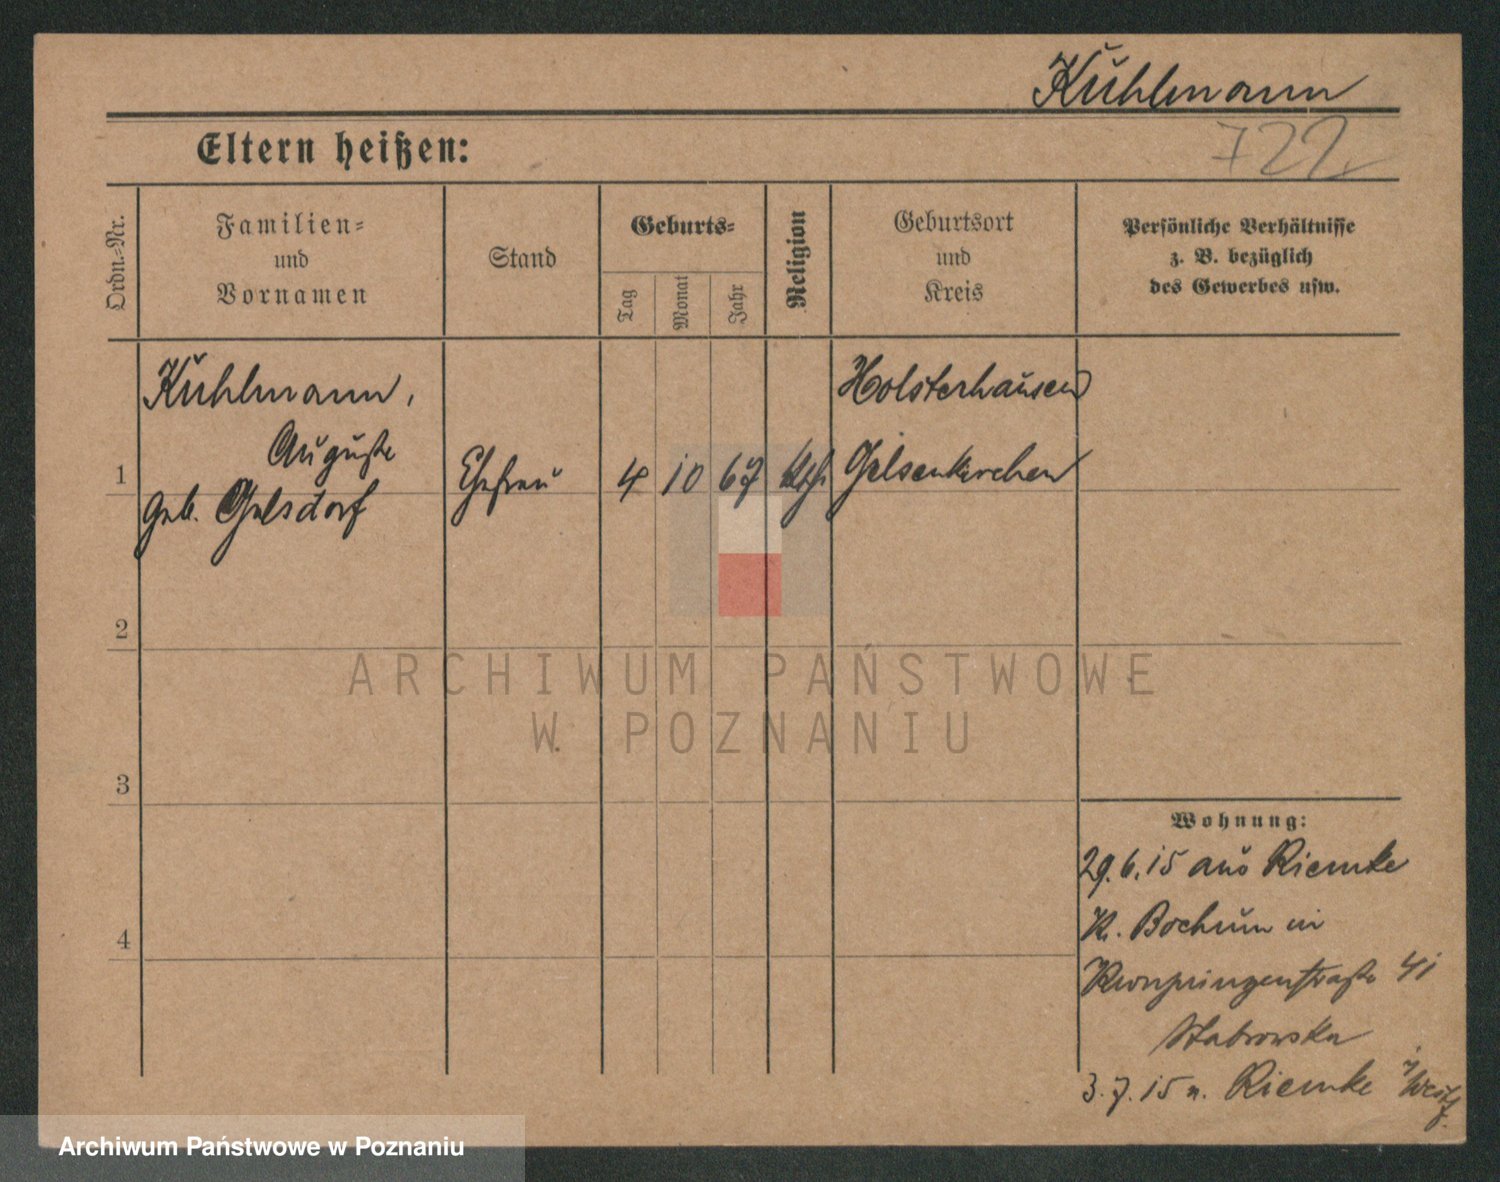 Kuhlmann
722
Eltern heißen:
Ordn.-Nr.
Familien-
und
Vornamen
Stand
Geburts-
Tag
Monat
Jahr
Religion
Geburtsort
und
Kreis
Persönliche Verhältnisse
z. B. bezüglich
des Gewerbes usw.
Kuhlmann,
Auguste
geb. Gelsdorf
1
Ehefrau
4 10 67
Holsterhausen
Gelsenkirchen
2
3
4
ARCHIWUM PAŃSTWOWE
W POZNANIU
Wohnung:
29.6.15 aus Riemke
K. Bochum in
Kronprinzenstraße 41
3.7.15 n. Riemke i/Westf.
Archiwum Państwowe w Poznaniu